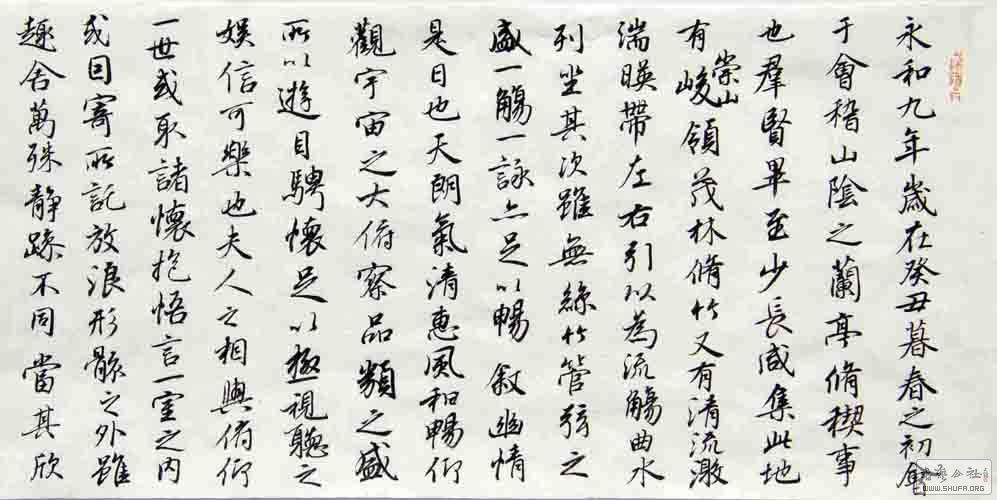 永和九年歲在癸丑暮春之初會
于會稽山陰之蘭亭脩稧事
也羣賢畢至少長咸集此地
有崇山峻領茂林脩竹又有清流激
湍暎帶左右引以為流觴曲水
列坐其次雖無絲竹管弦之
盛一觴一詠亦足以暢敘幽情
是日也天朗氣清惠風和暢仰
觀宇宙之大俯察品類之盛
所以遊目騁懷足以極視聽之
娛信可樂也夫人之相與俯仰
一世或取諸懷抱悟言一室之內
或因寄所託放浪形骸之外雖
趣舍萬殊靜躁不同當其欣
WWW.SHUFA.ORG